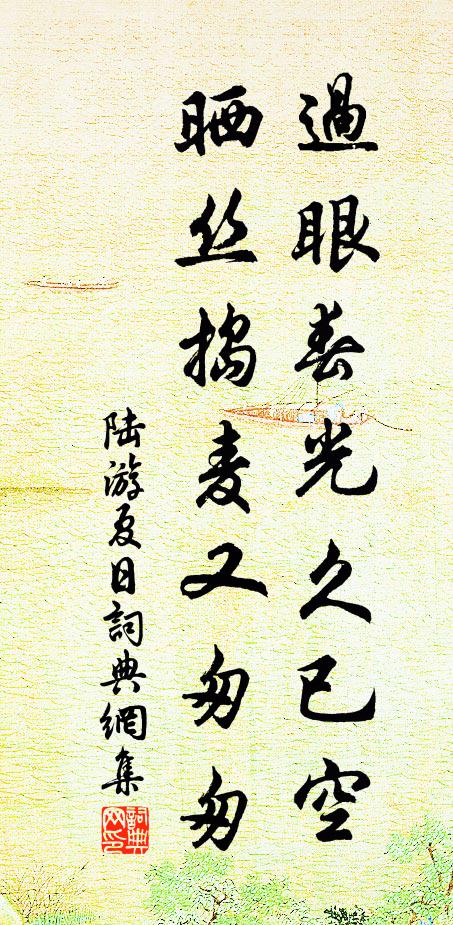 過眼春光久已空
晒丝捣麦又匆匆
陆游夏日詞典網集
詞典网印